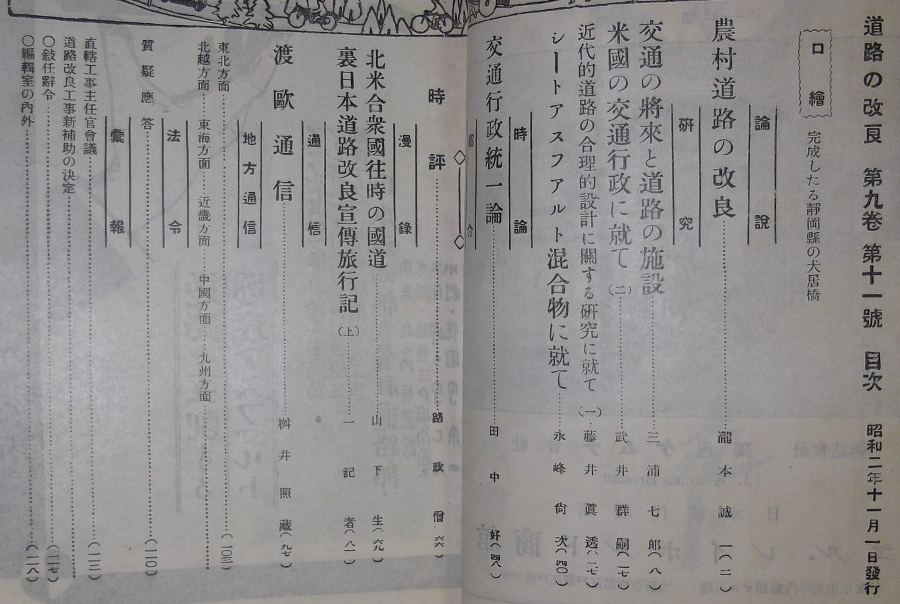 道路の改良 第九卷 第十一號 目次 昭和二年十一月一日發行
口繪 完成したる靜岡縣の犬居橋
論說
農村道路の改良 瀧本誠一(二)
硏究
交通の將來と道路の施設 三浦七郎(八)
米國の交通行政に就て(二) 武井群嗣(一七)
近代的道路の合理的設計に關する硏究に就て(一) 藤井眞透(二七)
シートアスフアルト混合物に就て 永峰尙次(四〇)
時論
交通行政統一論 田中好(四八)
時評 路政僧(六六)
漫錄
北米合衆國往時の國道 山下生(六九)
裏日本道路改良宣傳旅行記(上) 一記者(八一)
通信
渡歐通信 桝井照藏(九七)
地方通信
東北方面
北越方面 東海方面 近畿方面 中國方面 九州方面 (一〇三)
法令
質疑應答 (一一〇)
彙報
直轄工事主任官會議 (一一三)
道路改良工事新補助の決定
○敍任辭令 (一一七)
○編輯室の內外 (一一八)